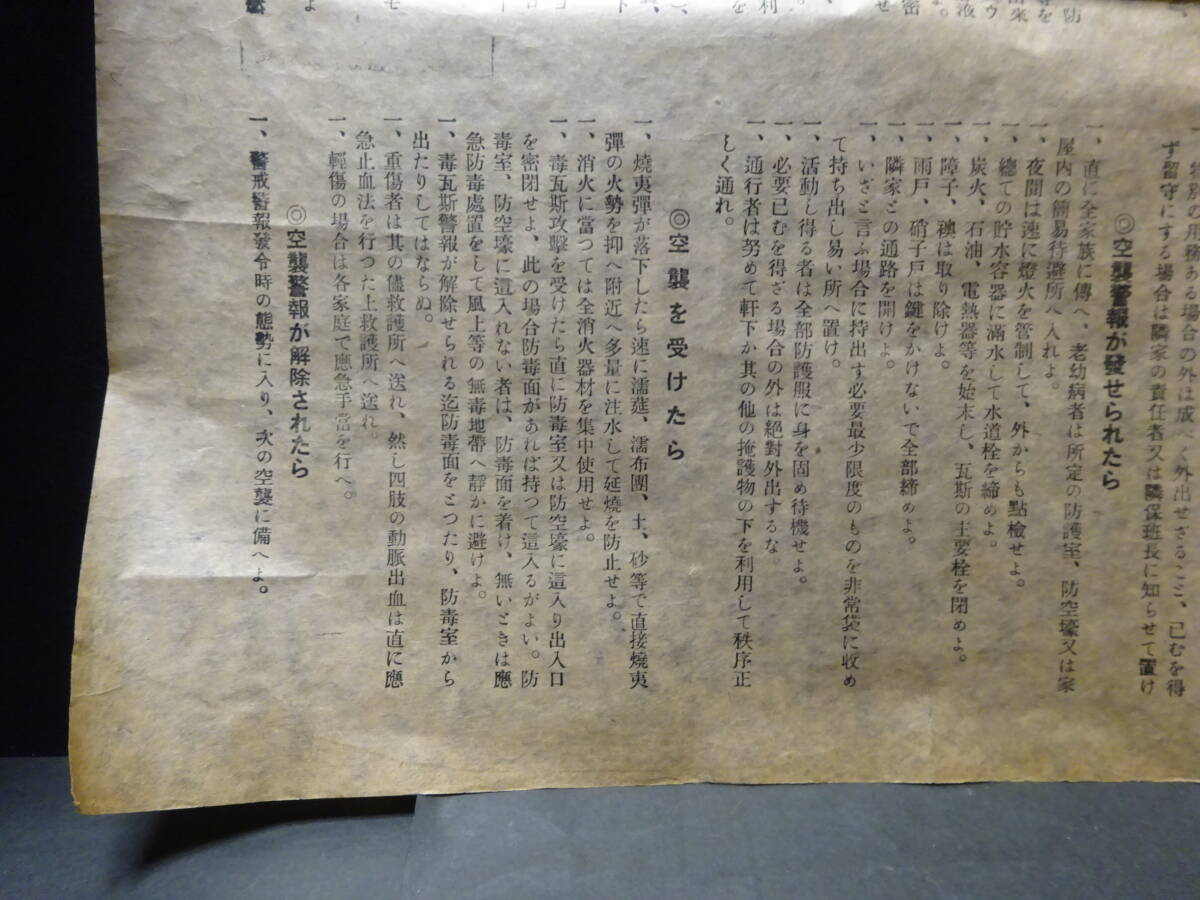 特別の用務ある場合の外は成べく外出せざること、已むを得
ず留守にする場合は隣家の責任者又は隣保班長に知らせて置け
◎空襲警報が發せられたら
一、直に全家族に傳へ、老幼病者は所定の防護室、防空壕又は家
屋内の簡易待避所へ入れよ。
一、夜間は速に燈火を管制して、外からも點檢せよ。
一、總ての貯水容器に滿水して水道栓を締めよ。
一、炭火、石油、電熱器等を始末し、瓦斯の主要栓を閉めよ。
一、障子、襖は取り除けよ。
一、雨戸、硝子戸は鍵をかけないで全部締めよ。
一、隣家との通路を開けよ。
一、いざと言ふ場合に持出す必要最少限度のものを非常袋に收め
て持ち出し易い所へ置け。
一、活動し得る者は全部防護服に身を固め待機せよ。
一、必要已むを得ざる場合の外は絕對外出するな
一、通行者は努めて軒下か其の他の掩護物の下を利用して秩序正
しく通れ。
◎空襲を受けたら
一、燒夷彈が落下したら速に濡莚、濡布團、土、砂等で直接燒夷
彈の火勢を抑へ附近へ多量に注水して延燒を防止せよ。
一、消火に當つては全消火器材を集中使用せよ。
一、毒瓦斯攻擊を受けたら直に防毒室又は防空壕に這入り出入口
を密閉せよ、此の場合防毒面があれば持つて這入るがよい。防
毒室、防空壕に這入れない者は、防毒面を着け、無いときは應
急防毒處置をして風上等の無毒地帶へ靜かに避けよ。
一、毒瓦斯警報が解除せられる迄防毒面をとつたり、防毒室から
出たりしてはならぬ。
一、重傷者は其の儘救護所へ送れ、然し四肢の動脈出血は直に應
急止血法を行つた上救護所へ送れ。
一、輕傷の場合は各家庭で應急手當を行へ。
◎空襲警報が解除されたら
一、警戒警報發令時の態勢に入り、次の空襲に備へよ。